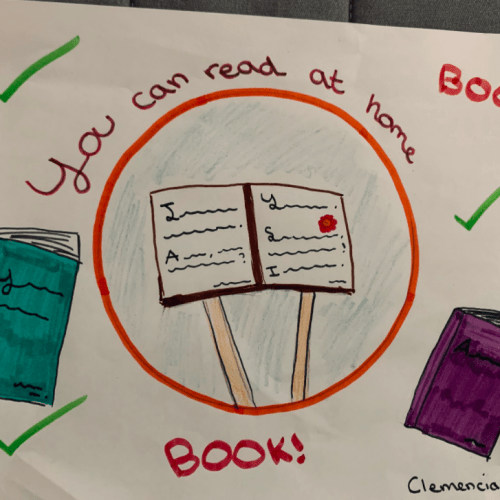 You can read at home
BOO
BOOK!
Clemencia